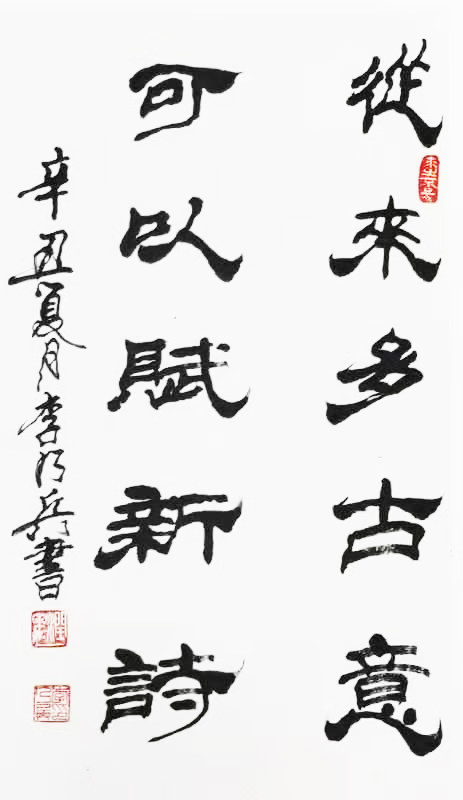 從來多古意
可以賦新詩
辛丑夏月李兵書